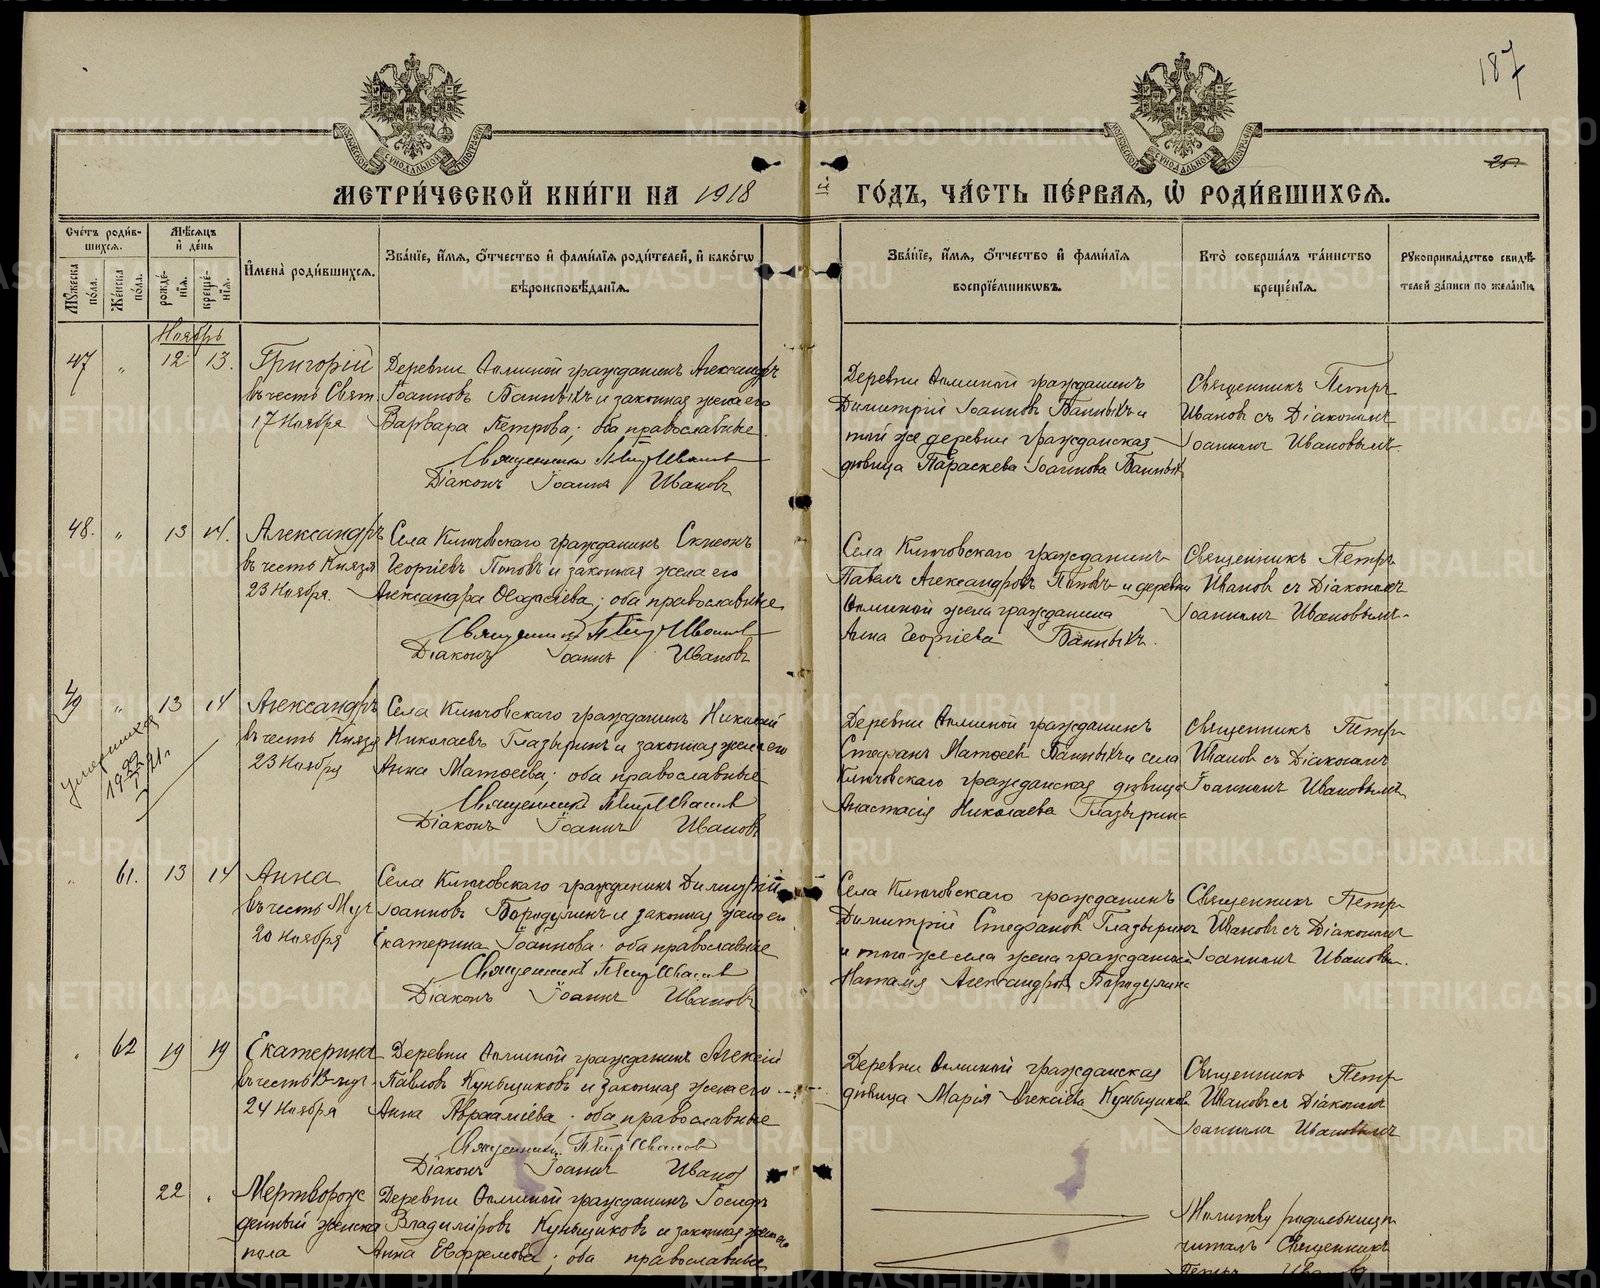 187
МЕТРИ́ЧЕСКОЙ КНИ́ГИ НА 1918 ГО́ДЪ, ЧА́СТЬ ПЕ́РВАЯ, Ѡ РОДИ́ВШИХСЯ.
Сче́тъ роди́вшихся.
Му́жеска по́ла.
Же́нска по́ла.
Мѣ́сяцъ и де́нь
рожде́нїя.
креще́нїя.
И́мена роди́вшихся.
Зва́нїе, и́мя, о́тчество и фами́лїя роди́телей, и како́гѡ
вѣроисповѣ́данїя.
Зва́нїе, и́мя, о́тчество и фами́лїя
воспрїе́мникѡвъ.
Кто̀ соверша́лъ та́инство
креще́нїя.
Рукоприкла́дство свидѣ́телей за́писи по жела́нїю
Ноябрь
47 " 12 13.
Григорій
въ честь Свят.
17 Ноября
гражданинъ Александръ
Іоанновъ Банныхъ и законная жена его
Варвара Петрова; оба православные.
Священникъ Петръ Ивановъ
Діаконъ Іоаннъ Ивановъ
Деревни гражданинъ
Димитрій Іоанновъ Банныхъ и
той же деревни гражданская
дѣвица Параскева Іоаннова Банныхъ
Священникъ Петръ
Ивановъ съ Діакономъ
Іоанномъ Ивановымъ.
48. " 13 14.
Александръ
въ честь Князя
23 Ноября.
Села Ключовскаго гражданинъ Симеонъ
Георгіевъ Поповъ и законная жена его
Александра; оба православные
Священникъ Петръ Ивановъ
Діаконъ Іоаннъ Ивановъ
Села Ключовскаго гражданинъ
Павелъ Александровъ Поповъ и деревни
жена гражданина
Анна Георгіева Банныхъ.
Священникъ Петръ
Ивановъ съ Діакономъ
Іоанномъ Ивановымъ.
49 " 13 14
Александръ
въ честь Князя
23 Ноября
Села Ключовскаго гражданинъ Николай
Николаевъ Глазыринъ и законная жена его
Анна Матѳеева; оба православные
Священникъ Петръ Ивановъ
Діаконъ Іоаннъ Ивановъ
Деревни гражданинъ
Стефанъ Матѳеевъ Банныхъ и села
Ключовскаго гражданская дѣвица
Анастасія Николаева Глазырина
Священникъ Петръ
Ивановъ съ Діакономъ
Іоанномъ Ивановымъ
" 61. 13 14
Анна
въ честь Муч
20 Ноября
Села Ключовскаго гражданинъ Димитрій
Іоанновъ Бородулинъ и законная жена его
Екатерина Іоаннова; оба православные
Священникъ Петръ Ивановъ
Діаконъ Іоаннъ Ивановъ
Села Ключовскаго гражданинъ
Димитрій Стефановъ Глазыринъ
и того же села жена гражданина
Наталія Александрова Бородулина
Священникъ Петръ
Ивановъ съ Діакономъ
Іоанномъ Ивановымъ.
" 62 19 19
Екатерина
въ честь В-муч.
24 Ноября
Деревни гражданинъ Алексій
Павловъ Куньщиковъ и законная жена его
Анна Авраамiева; оба православные
Священникъ Петръ Ивановъ
Діаконъ Іоаннъ Ивановъ
Деревни гражданская
дѣвица Марія Алексіева Куньщикова
Священникъ Петръ
Ивановъ съ Діакономъ
Іоанномъ Ивановымъ
22 "
Мертворожденный женска
пола
Деревни гражданинъ Іосифъ
Владиміровъ Куньщиковъ и законная жена его
Анна Ефремова; оба православные
Молитву родильницы
читалъ Священникъ
METRIKI.GASO-URAL.RU